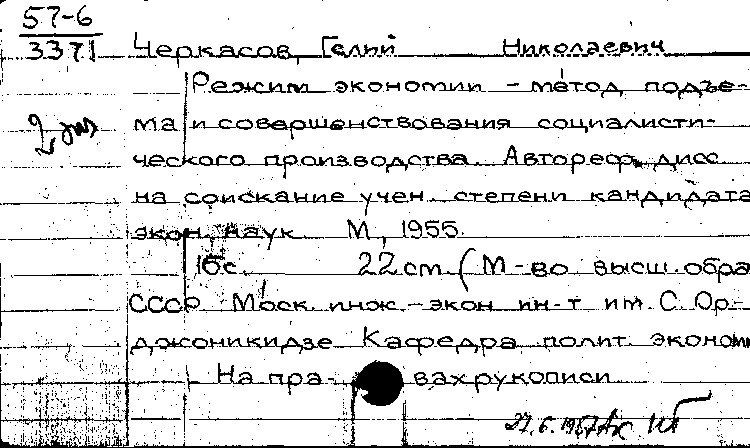 57-6
3371 Черкасов, Гелий Николаевич
Режим экономии - метод подъе-
2 экз ма и совершенствования социалисти-
ческого производства. Автореф. дисс.
на соискание учен. степени кандидата
экон. наук. М., 1955.
16с. 22см. (М-во высш. обра
СССР. Моск. инж.-экон. ин-т им. С. Ор-
джоникидзе. Кафедра полит. эконом
На пра- вах рукописи
27.6.1957